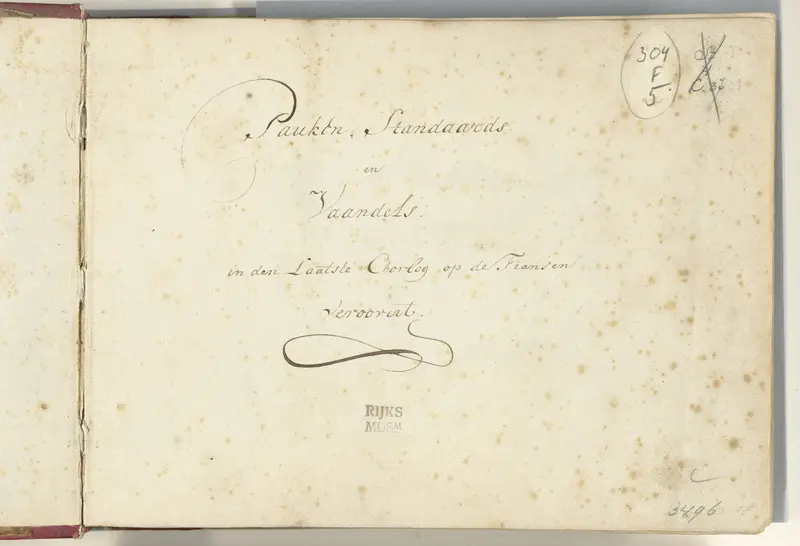 304
F
5.
Pauken, Standaards
en
Vaandels.
in den Laatste Oorlog op de Fransen
Verovert.
RIJKS
MUSM
5896